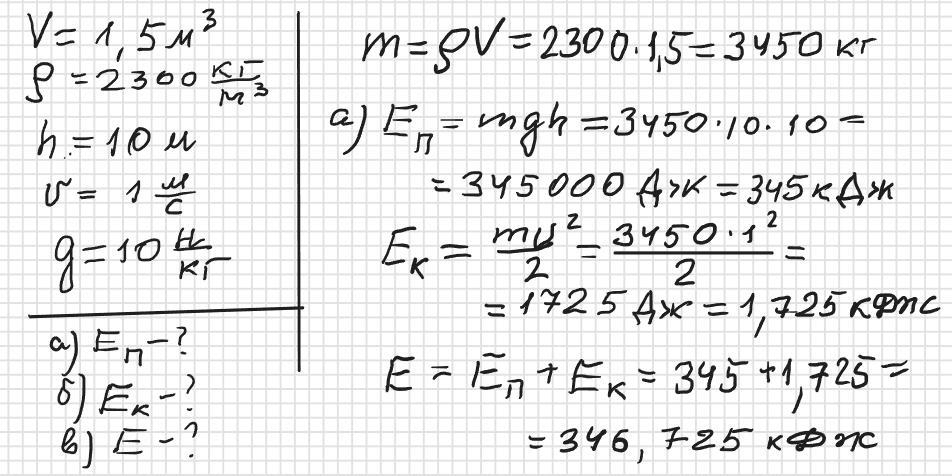 V = 1,5 м³
ρ = 2300 кг/м³
h = 10 м
υ = 1 м/с
g = 10 Н/кг
а) Eп - ?
б) Eк - ?
в) E - ?
m = ρV = 2300·1,5 = 3450 кг
а) Eп = mgh = 3450·10·10 =
= 345000 Дж = 345 кДж
Eк = mυ²/2 = 3450·1²/2 =
= 1725 Дж = 1,725 кДж
E = Eп + Eк = 345 + 1,725 =
= 346,725 кДж